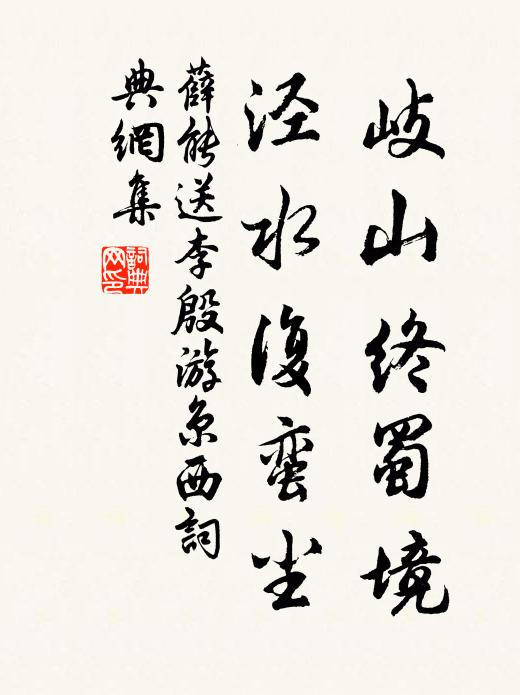 岐山终蜀境
泾水復蛮尘
薛能送李殷游京西詞
典網集
詞典网印